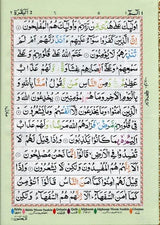 البقرة ٢
اُولٰٓئِكَ عَلٰى هُدًى مِّنْ رَّبِّهِمْ وَاُولٰٓئِكَ هُمُ الْمُفْلِحُوْنَ
اِنَّ الَّذِيْنَ كَفَرُوْا سَوَآءٌ عَلَيْهِمْ ءَاَنْذَرْتَهُمْ اَمْ لَمْ
تُنْذِرْهُمْ لَا يُؤْمِنُوْنَ خَتَمَ اللّٰهُ عَلٰى قُلُوْبِهِمْ وَعَلٰى
سَمْعِهِمْ وَعَلٰٓى اَبْصَارِهِمْ غِشَاوَةٌ وَّلَهُمْ عَذَابٌ
عَظِيْمٌ وَمِنَ النَّاسِ مَنْ يَّقُوْلُ اٰمَنَّا بِاللّٰهِ وَ
بِالْيَوْمِ الْاٰخِرِ وَمَا هُمْ بِمُؤْمِنِيْنَ يُخٰدِعُوْنَ اللّٰهَ
وَالَّذِيْنَ اٰمَنُوْا وَمَا يَخْدَعُوْنَ اِلَّآ اَنْفُسَهُمْ وَمَا
يَشْعُرُوْنَ فِيْ قُلُوْبِهِمْ مَّرَضٌ فَزَادَهُمُ اللّٰهُ مَرَضًا
وَلَهُمْ عَذَابٌ اَلِيْمٌ بِمَا كَانُوْا يَكْذِبُوْنَ وَاِذَا قِيْلَ لَهُمْ
لَا تُفْسِدُوْا فِي الْاَرْضِ قَالُوْٓا اِنَّمَا نَحْنُ مُصْلِحُوْنَ
اَلَآ اِنَّهُمْ هُمُ الْمُفْسِدُوْنَ وَلٰكِنْ لَّا يَشْعُرُوْنَ وَاِذَا
قِيْلَ لَهُمْ اٰمِنُوْا كَمَآ اٰمَنَ النَّاسُ قَالُوْٓا اَنُؤْمِنُ
كَمَآ اٰمَنَ السُّفَهَآءُ اَلَآ اِنَّهُمْ هُمُ السُّفَهَآءُ